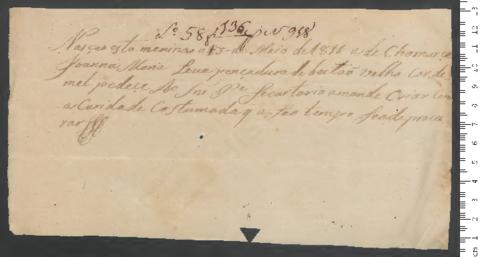 Lº 58 f 136 nº 958
Nasceo esta menina a 15 de Maio de 1811 e de Chamarce
Joanna Maria Leva pença dura de bertão velho Cor de
mel pedeçe Ao Snr Pe Secartario amande Criar Com
a Caridade Costumada q a seo tempo Se ade procu
rar